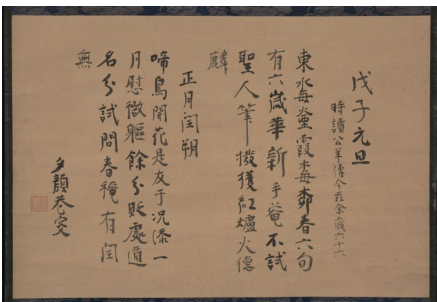 戊子元旦
時讀公羊傳今茲余歲六十六
東水毎 霞毎鄰春六旬
有六歳華新手 不試
聖人筆撥獲紅爐火德
麟
正月閏朔
啼鳥開花是友于況添一
月慰微軀餘分 處通
名分試問春 有閏
無
夕顔巷叟